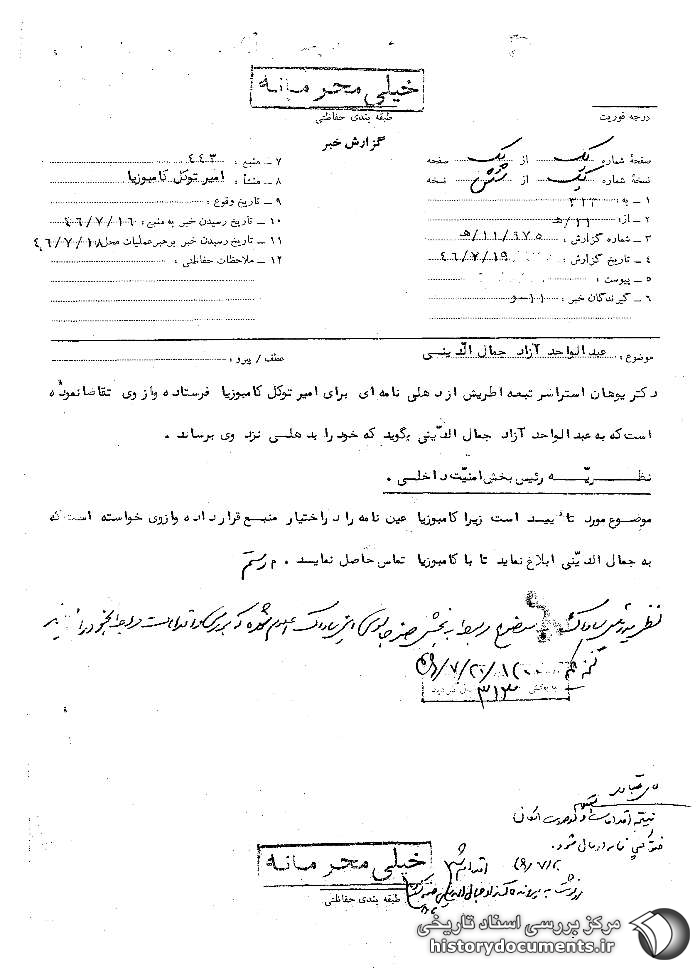 خیلی محرمانه
طبقه بندی حفاظتی
درجه فوریت
گزارش خبر
صفحهٔ شماره یک از یک صفحه
نسخهٔ شماره یک از شش نسخه
۱ ـ به : ۳۱۳
۲ ـ از: ۱۱/هـ
۳ ـ شماره گزارش : ۱۱/۶۷۵/هـ
۴ ـ تاریخ گزارش : ۴۶/۷/۱۹
۵ ـ پیوست :
۶ ـ گیرندگان خبر :
۷ ـ منبع : ۴۴۳
۸ ـ منشأ : امیر توکل کامبوزیا
۹ ـ تاریخ وقوع :
۱۰ ـ تاریخ رسیدن خبر به منبع : ۴۶/۷/۱۶
۱۱ ـ تاریخ رسیدن خبر برهبر عملیات محل ۴۶/۷/۱۸
۱۲ ـ ملاحظات حفاظتی :
موضوع : عبدالواحد آزاد جمال الدّینی
عطف / پیرو :
دکتر یوهان استراسر تبعه اطریش از دهلی نامه ای برای امیر توکل کامبوزیا فرستاده و از وی تقاضا نموده
است که به عبدالواحد آزاد جمال الدّینی بگوید که خود را به دهلی نزد وی برساند .
نظریّه رئیس بخش امنیّت داخلی .
موضوع مورد تأیید است زیرا کامبوزیا عین نامه را در اختیار منبع قرار داده و از وی خواسته است که
به جمال الدّینی ابلاغ نماید تا با کامبوزیا تماس حاصل نمایند .
نظریه رئیس ساواک
موضوع
به بخش ۳۱۳
خیلی محرمانه
طبقه بندی حفاظتی
مرکز بررسی اسناد تاریخی
historydocuments.ir